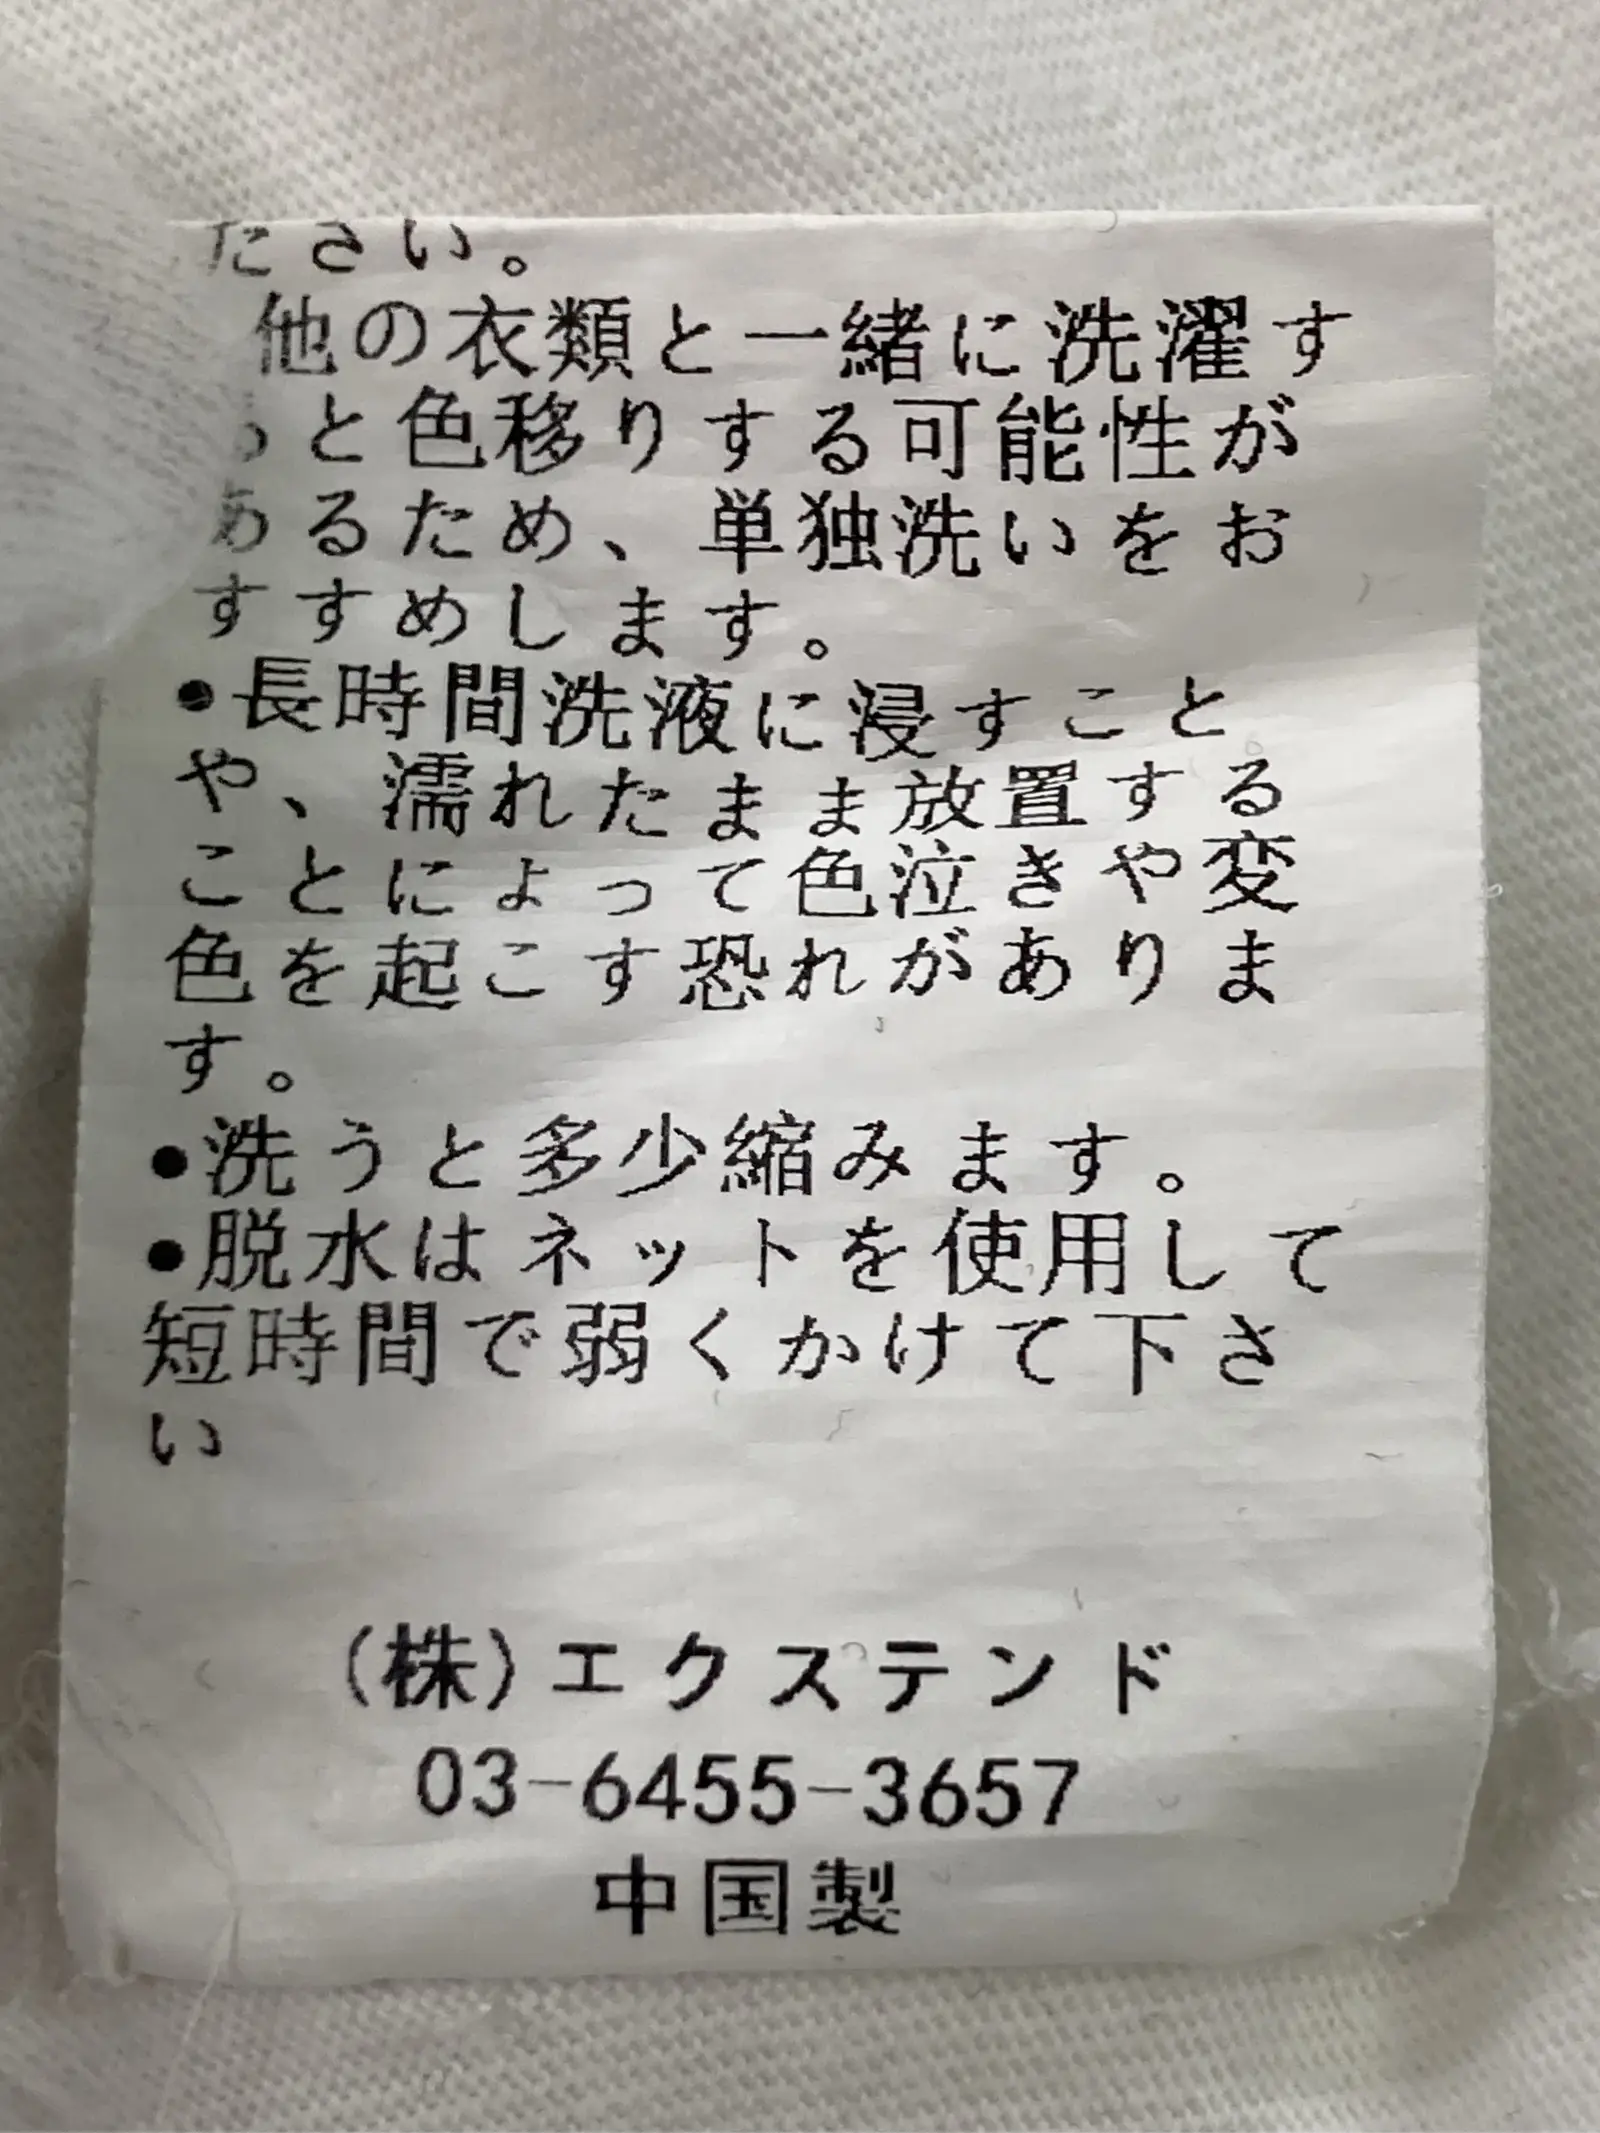 ださい。
他の衣類と一緒に洗濯す
ると色移りする可能性が
あるため、単独洗いをお
すすめします。
●長時間洗液に浸すこと
や、濡れたまま放置する
ことによって色泣きや変
色を起こす恐れがありま
す。
●洗うと多少縮みます。
●脱水はネットを使用して
短時間で弱くかけて下さ
い
(株)エクステンド
03-6455-3657
中国製